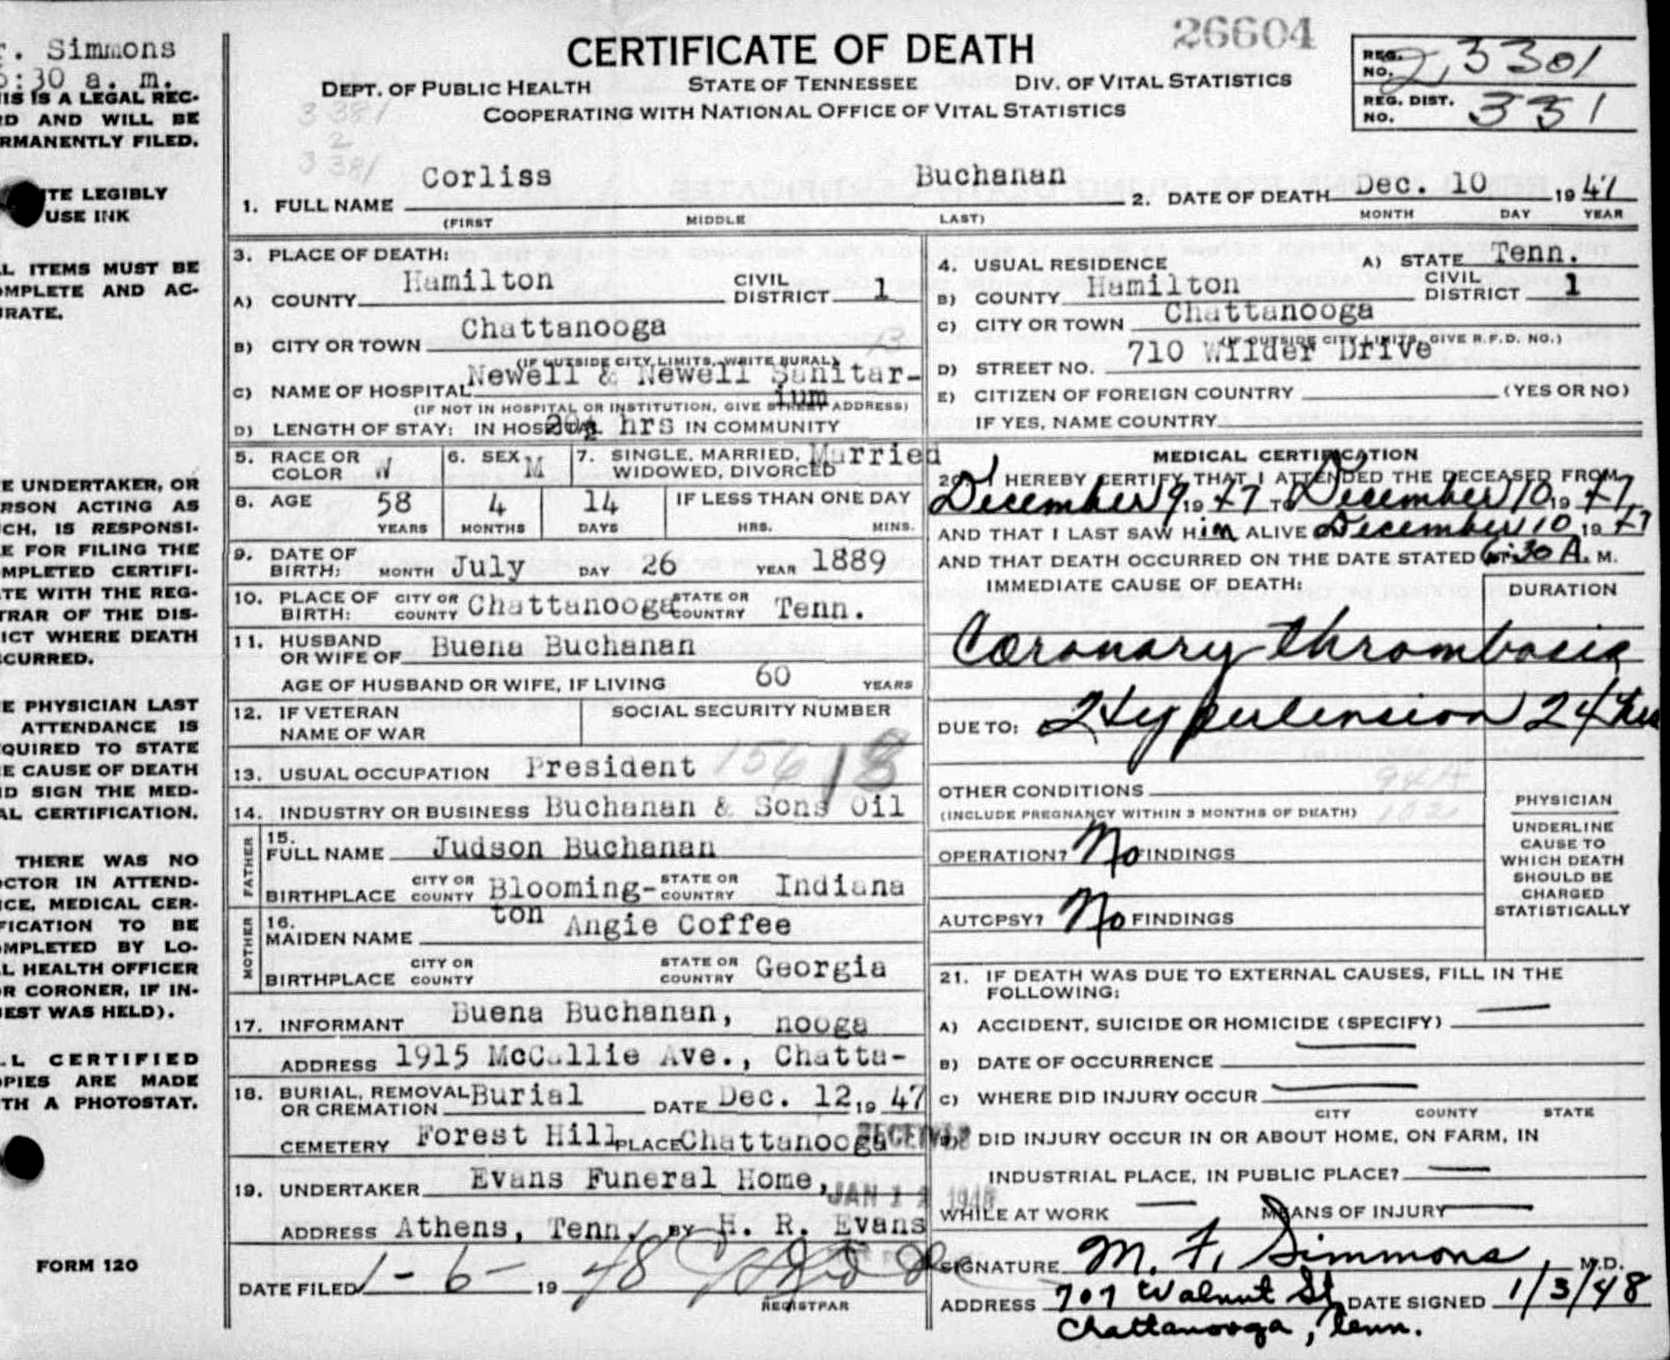 . Simmons
:30 a. m.
IS IS A LEGAL REC-
RD AND WILL BE
RMANENTLY FILED.
TE LEGIBLY
USE INK
L ITEMS MUST BE
OMPLETE AND AC-
RATE.
E UNDERTAKER, OR
RSON ACTING AS
CH, IS RESPONSI-
E FOR FILING THE
MPLETED CERTIFI-
TE WITH THE REG-
TRAR OF THE DIS-
ICT WHERE DEATH
CURRED.
E PHYSICIAN LAST
ATTENDANCE IS
QUIRED TO STATE
E CAUSE OF DEATH
D SIGN THE MED-
AL CERTIFICATION.
THERE WAS NO
CTOR IN ATTEND-
CE, MEDICAL CER-
FICATION TO BE
MPLETED BY LO-
L HEALTH OFFICER
R CORONER, IF IN-
EST WAS HELD).
L CERTIFIED
PIES ARE MADE
TH A PHOTOSTAT.
FORM 120
26604
CERTIFICATE OF DEATH
DEPT. OF PUBLIC HEALTH STATE OF TENNESSEE DIV. OF VITAL STATISTICS
COOPERATING WITH NATIONAL OFFICE OF VITAL STATISTICS
REG. NO. 23301
REG. DIST. NO. 331
3381
2
3381
1. FULL NAME Corliss Buchanan 2. DATE OF DEATH Dec. 10 1947
(FIRST MIDDLE LAST) MONTH DAY YEAR
3. PLACE OF DEATH:
A) COUNTY Hamilton CIVIL DISTRICT 1
B) CITY OR TOWN Chattanooga 13
(IF OUTSIDE CITY LIMITS, WRITE RURAL)
C) NAME OF HOSPITAL Newell & Newell Sanitar-
ium
(IF NOT IN HOSPITAL OR INSTITUTION, GIVE STREET ADDRESS)
D) LENGTH OF STAY: IN HOSPITAL hrs IN COMMUNITY
4. USUAL RESIDENCE A) STATE Tenn.
B) COUNTY Hamilton CIVIL DISTRICT 1
C) CITY OR TOWN Chattanooga
(IF OUTSIDE CITY LIMITS, GIVE R.F.D. NO.)
D) STREET NO. 710 Wilder Drive
E) CITIZEN OF FOREIGN COUNTRY (YES OR NO)
IF YES, NAME COUNTRY
5. RACE OR COLOR W 6. SEX M 7. SINGLE, MARRIED, WIDOWED, DIVORCED Married
8. AGE 58 4 14 IF LESS THAN ONE DAY
YEARS MONTHS DAYS HRS. MINS.
9. DATE OF BIRTH: MONTH July DAY 26 YEAR 1889
10. PLACE OF BIRTH: CITY OR COUNTY Chattanooga STATE OR COUNTRY Tenn.
11. HUSBAND OR WIFE OF Buena Buchanan
AGE OF HUSBAND OR WIFE, IF LIVING 60 YEARS
12. IF VETERAN NAME OF WAR SOCIAL SECURITY NUMBER
13. USUAL OCCUPATION President 156 18
14. INDUSTRY OR BUSINESS Buchanan & Sons Oil
FATHER
15. FULL NAME Judson Buchanan
BIRTHPLACE CITY OR COUNTY Blooming- STATE OR COUNTRY Indiana
ton
MOTHER
16. MAIDEN NAME Angie Coffee
BIRTHPLACE CITY OR COUNTY STATE OR COUNTRY Georgia
17. INFORMANT Buena Buchanan, nooga
ADDRESS 1915 McCallie Ave., Chatta-
18. BURIAL, REMOVAL OR CREMATION Burial DATE Dec. 12, 1947
CEMETERY Forest Hill PLACE Chattanooga
RECEIVED
19. UNDERTAKER Evans Funeral Home,
JAN 1948
ADDRESS Athens, Tenn. BY H. R. Evans
DATE FILED 1-6- 19 48
REGISTRAR
MEDICAL CERTIFICATION
20. I HEREBY CERTIFY THAT I ATTENDED THE DECEASED FROM
December 9 19 47 TO December 10 19 47
AND THAT I LAST SAW Him ALIVE December 10 19 47
AND THAT DEATH OCCURRED ON THE DATE STATED AT 6:30 A. M.
IMMEDIATE CAUSE OF DEATH: DURATION
Coronary thrombosis
DUE TO: Hypertension 24 hrs
OTHER CONDITIONS 94A
(INCLUDE PREGNANCY WITHIN 3 MONTHS OF DEATH) 102
OPERATION? No FINDINGS
AUTOPSY? No FINDINGS
PHYSICIAN
UNDERLINE
CAUSE TO
WHICH DEATH
SHOULD BE
CHARGED
STATISTICALLY
21. IF DEATH WAS DUE TO EXTERNAL CAUSES, FILL IN THE
FOLLOWING:
A) ACCIDENT, SUICIDE OR HOMICIDE (SPECIFY) —
B) DATE OF OCCURRENCE —
C) WHERE DID INJURY OCCUR —
CITY COUNTY STATE
D) DID INJURY OCCUR IN OR ABOUT HOME, ON FARM, IN
INDUSTRIAL PLACE, IN PUBLIC PLACE? —
WHILE AT WORK — MEANS OF INJURY —
SIGNATURE M. F. Simmons, M.D.
ADDRESS 707 Walnut St DATE SIGNED 1/3/48
Chattanooga, Tenn.